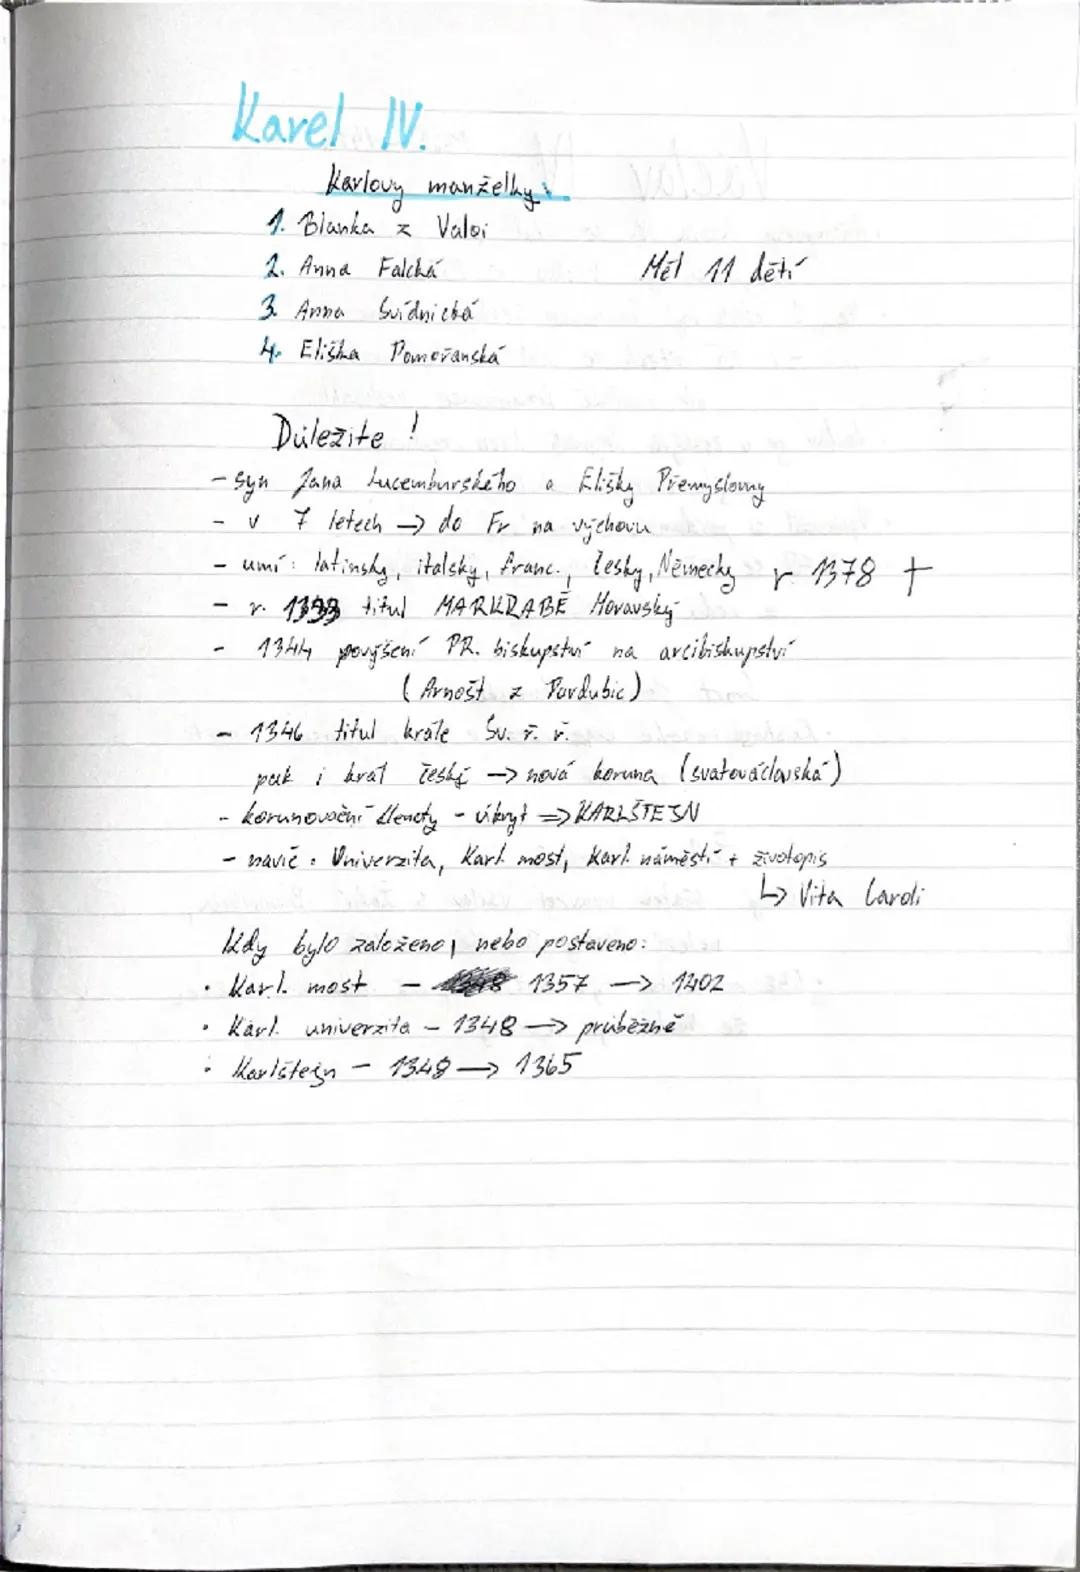 Karel IV.
Karlovy manželky:
1. Blanka z Valoi
2. Anna Falcká
Měl 11 dětí
3. Anna Svídnická
4. Eliška Pomořanská
Důležite!
- syn Jana Lucemburského a Elišky Přemyslovny
- v 7 letech → do Fr na výchovu
- umí: latinsky, italsky, franc., česky, Německy
r 1378 †
- r. 1333 titul MARKRABĚ Moravský
- 1344 povýšení PR. biskupství na arcibiskupství
(Arnošt z Pardubic)
- 1346 titul krále Sv. ř. ř.
pak i král český → nová koruna (svatováclavská)
- korunovační klenoty - úkryt ⇒ KARLŠTEJN
- navíc: Univerzita, Karl. most, Karl. náměstí + životopis
↳ Vita Caroli
Kdy bylo založeno, nebo postaveno:
• Karl. most - 1357 → 1402
• Karl. univerzita - 1348 → průběžně
• Karlštejn - 1348 → 1365